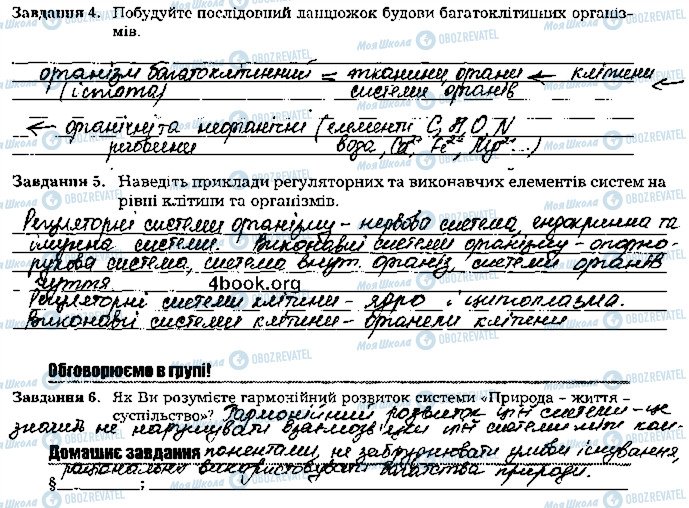 Завдання 4. Побудуйте послідовний ланцюжок будови багатоклітинних організ-
мів.
організм багатоклітинний = тканини органи ← клітини
(істота) системи органів ←
← органічні та неорганічні (елементи C, H, O, N
речовини вода, Ca²⁺, Fe²⁺, Mg²⁺...)
Завдання 5. Наведіть приклади регуляторних та виконавчих елементів систем на
рівні клітини та організмів.
Регуляторні системи організму - нервова система, ендокринна та
імунна системи. Виконавчі системи організму - опорно-
рухова система, система внут. органів, системи органів
чуття 4book.org
Регуляторні системи клітини - ядро і цитоплазма.
Виконавчі системи клітини - органели клітини
Обговорюємо в групі!
Завдання 6. Як Ви розумієте гармонійний розвиток системи «Природа – життя –
суспільство»? Гармонійний розвиток цієї системи - це
значить не порушувати взаємозв'язки цієї системи між ком-
Домашнє завдання понентами, не забруднювати умови існування,
раціонально використовувати багатства природи.
§ ;
Моя Школа OBOZREVATEL